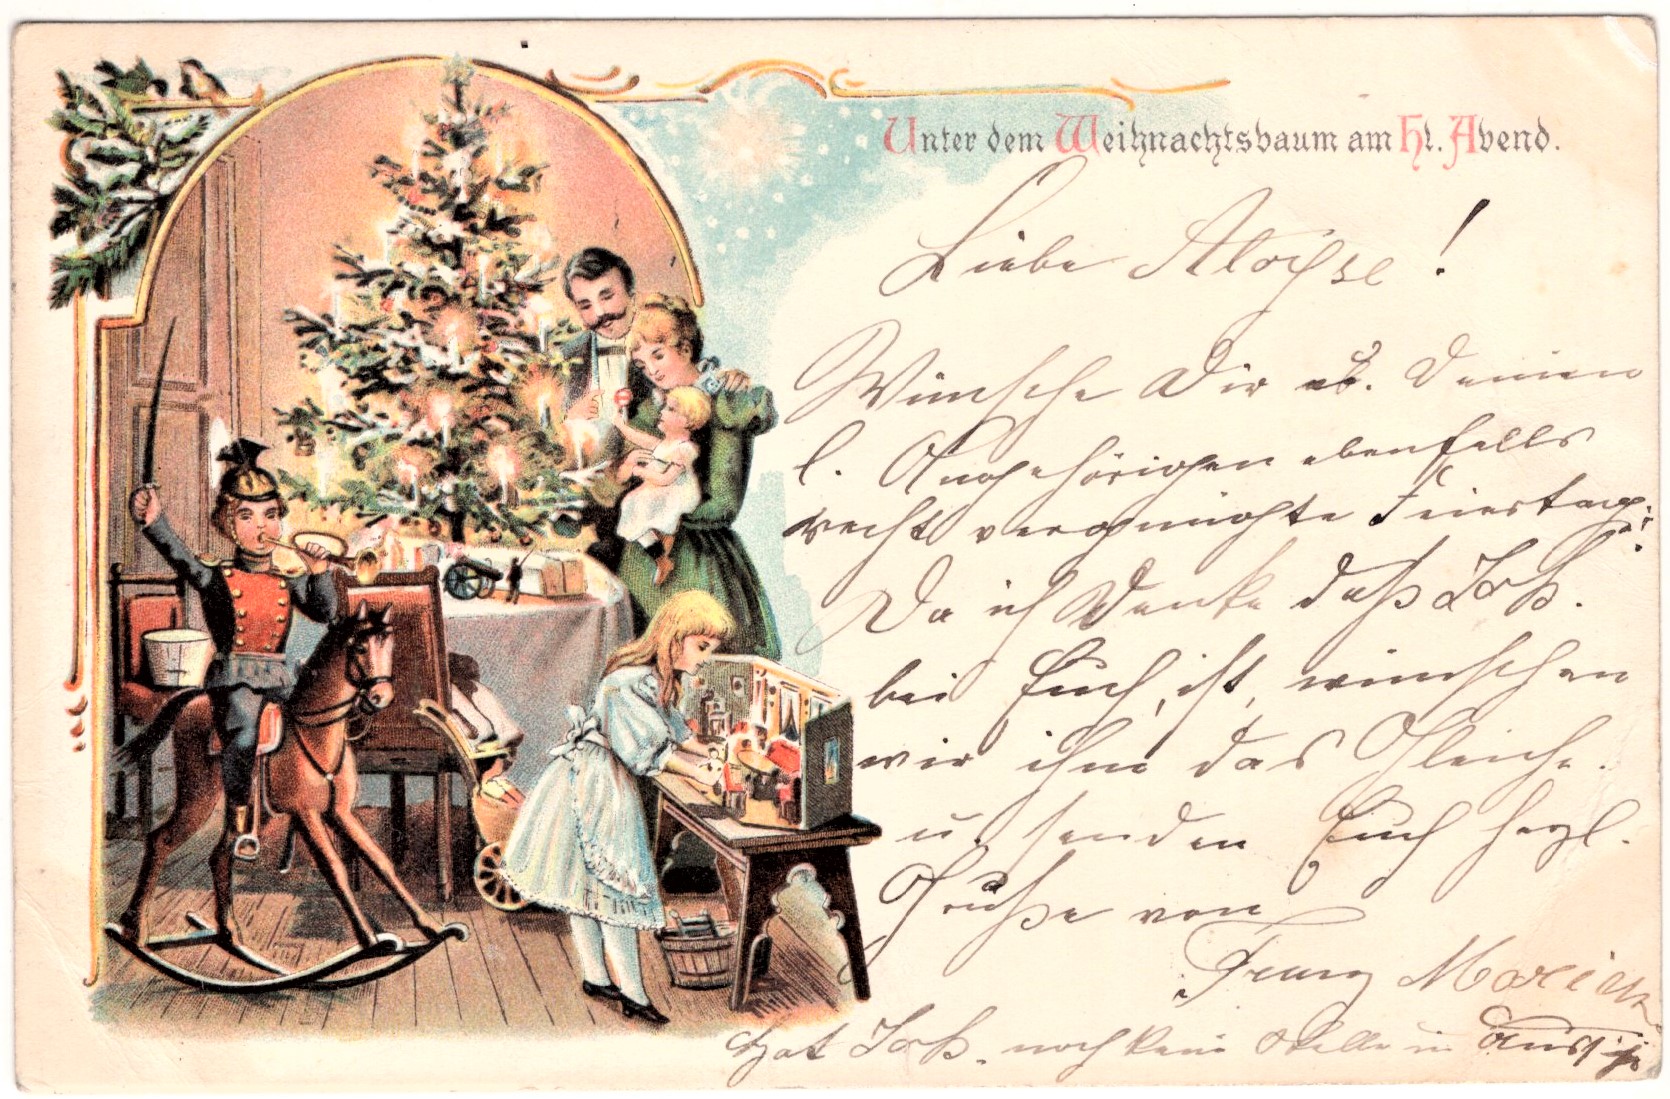 Unter dem Weihnachtsbaum am Hl. Abend.
Liebe Aloyse!
Wünsche Dir u. Deinen
l. Angehörigen ebenfalls
recht vergnügte Feiertage.
Da ich denke daß Jos.
bei Euch, ist, wünschen
wir ihm das Gleiche.
u. senden Euch herzl.
Grüße von
Franz
Hat Jos. noch keine Stelle in